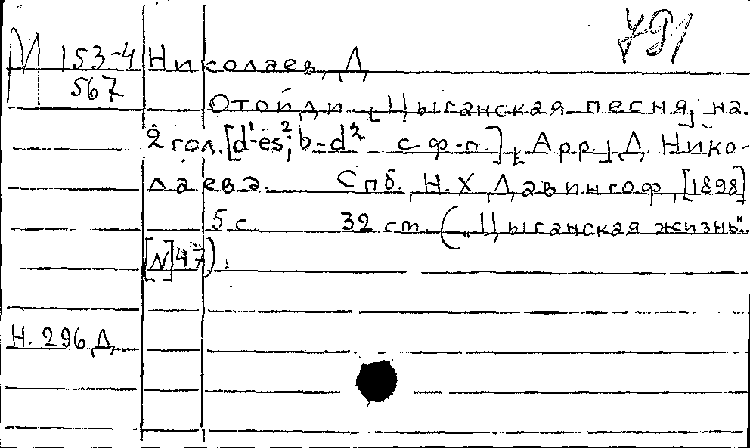 791
М 153-4 Николаев, Д.
567
Отойди. [Цыганская песня] на
2 гол. [d¹-es²; b-d² с ф-п.] [Арр.] Д. Нико-
лаева. Спб., Н. Х. Давингоф, [1898]
5 с. 32 см. („Цыганская жизнь"
[N] 47).
Н. 296 Д.